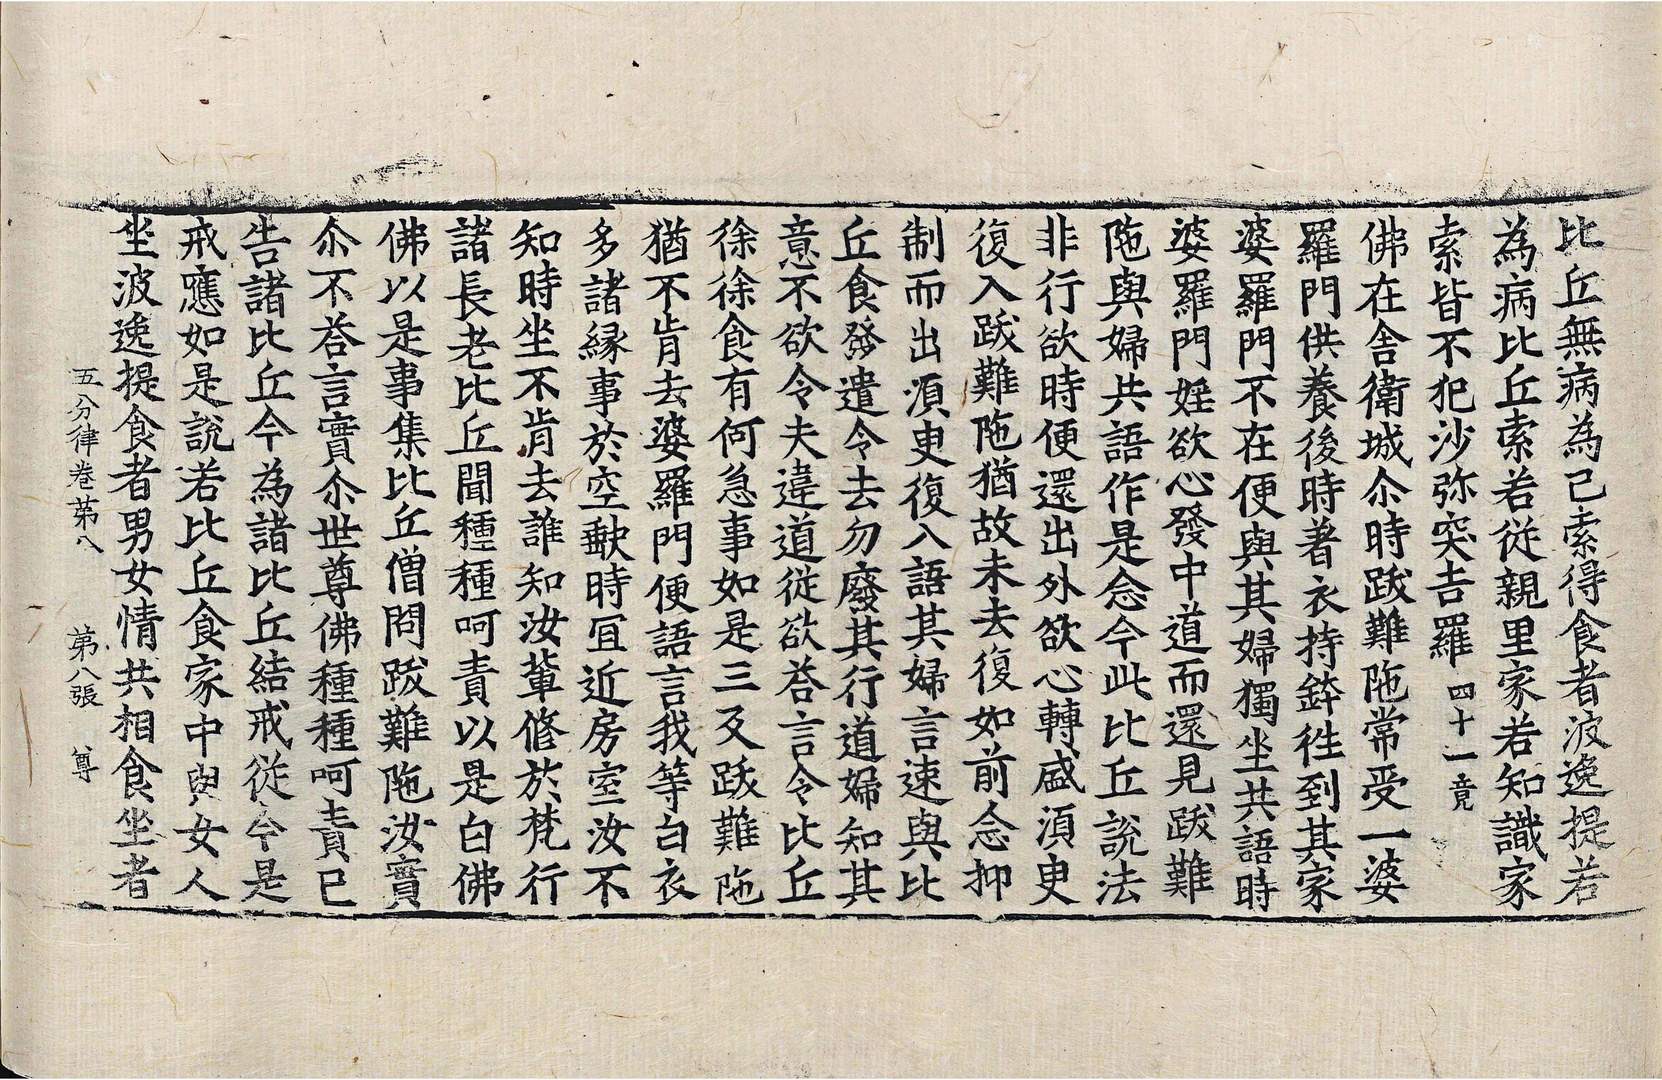 比丘無病為己索得食者波逸提若
為病比丘索若従親里家若知識家
索皆不犯沙弥突吉羅 四十一竟
佛在舎衛城尒時跋難陁常受一婆
羅門供養後時著衣持鉢徃到其家
婆羅門不在便與其婦獨坐共語時
婆羅門婬欲心發中道而還見跋難
陁與婦共語作是念今此比丘說法
非行欲時便還出外欲心轉盛湏臾
復入跋難陁猶故未去復如前念抑
制而出湏臾復入語其婦言速與比
丘食發遣令去勿廢其行道婦知其
意不欲令夫違道従欲荅言令比丘
徐徐食有何急事如是三反跋難陁
猶不肯去婆羅門便語言我等白衣
多諸縁事於空䡖時冝近房室汝不
知時坐不肯去誰知汝輩修於梵行
諸長老比丘聞種種呵責以是白佛
佛以是事集比丘僧問跋難陁汝實
尒不荅言實尒世尊佛種種呵責已
告諸比丘今為諸比丘結戒従今是
戒應如是說若比丘食家中與女人
坐波逸提食者男女情共相食坐者
五分律巻第八 第八張 尊